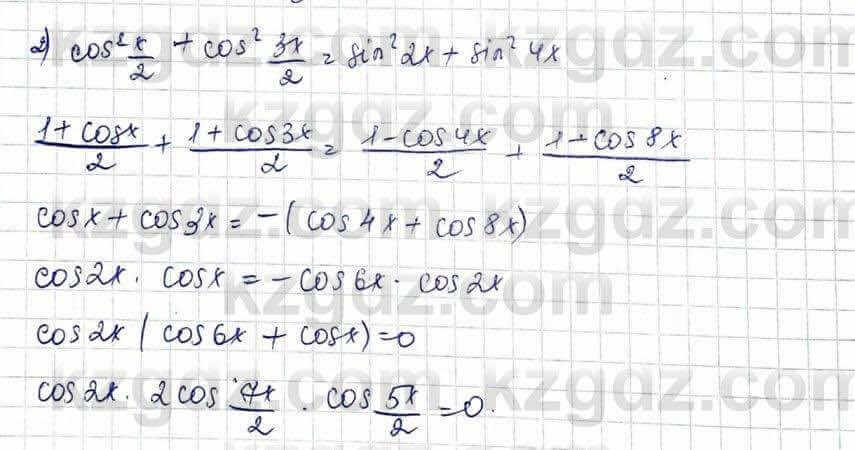 2) cos² x/2 + cos² 3x/2 = sin² 2x + sin² 4x
(1 + cosx)/2 + (1 + cos3x)/2 = (1 - cos4x)/2 + (1 - cos8x)/2
cosx + cos3x = -(cos4x + cos8x)
cos2x · cosx = -cos6x · cos2x
cos2x (cos6x + cosx) = 0
cos2x · 2cos 7x/2 · cos 5x/2 = 0.
kzgdz.com